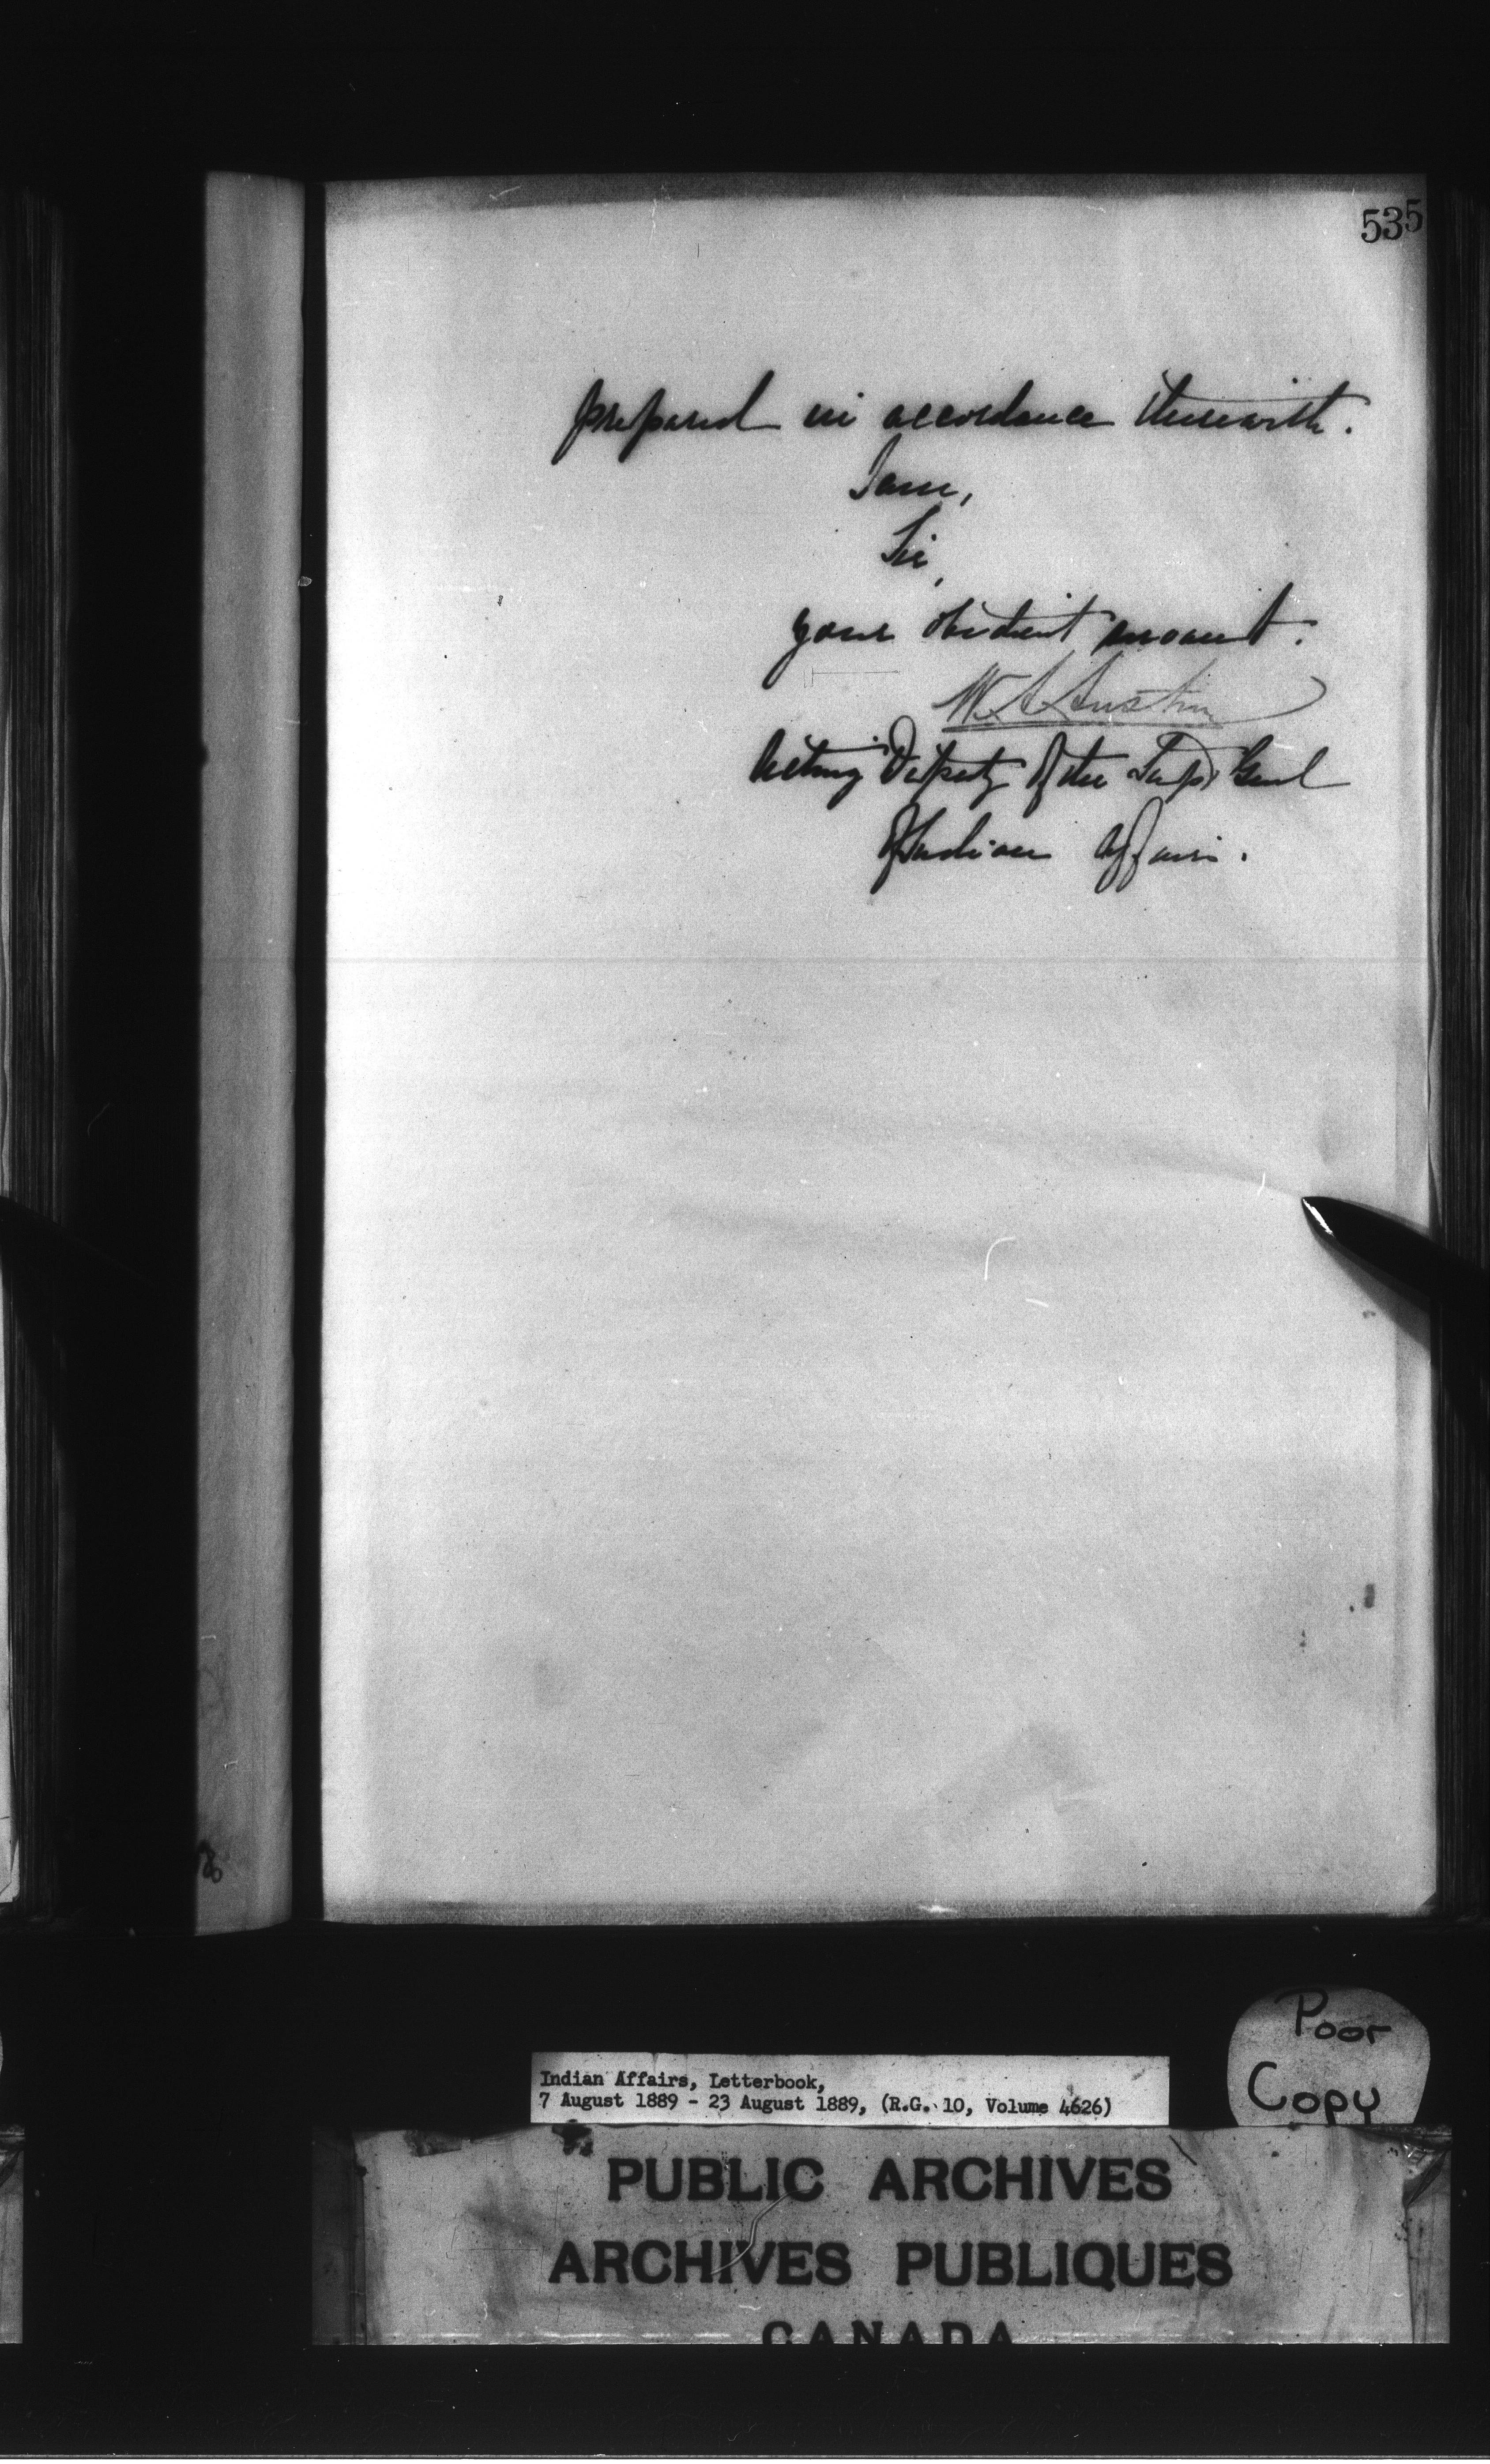 535
prepared in accordance therewith.
I am,
Sir,
your obedient servant.
W A Austin
Acting Deputy of the Supt Genl
of Indian Affairs.
Poor
Copy
Indian Affairs, Letterbook,
7 August 1889 - 23 August 1889, (R.G. 10, Volume 4626)
PUBLIC ARCHIVES
ARCHIVES PUBLIQUES
CANADA